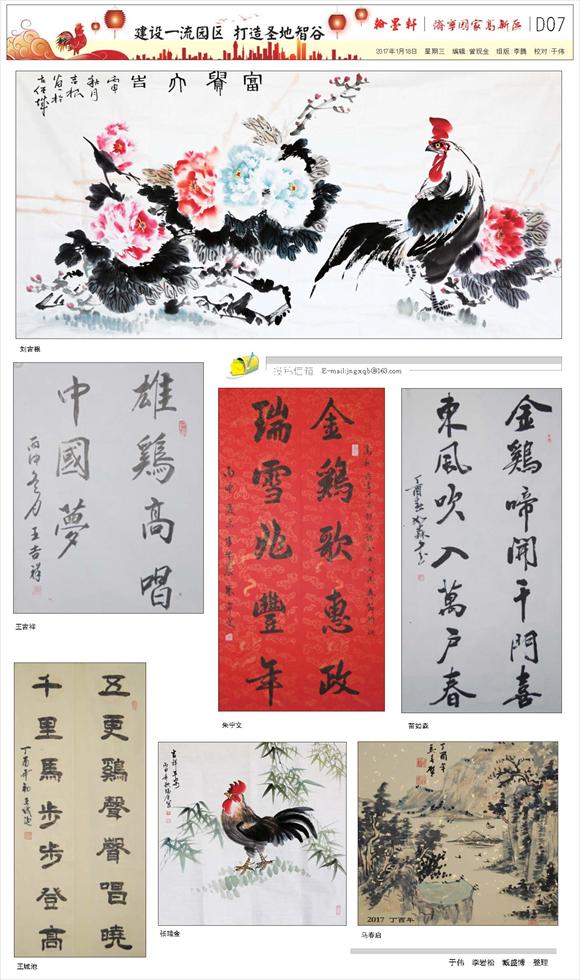 建设一流园区 打造圣地智谷
翰墨轩
济宁国家高新区
D07
2017年1月18日 星期三 编辑:曾现金 组版:李腾 校对:于伟
富贵大吉
刘吉振
投稿信箱 E-mail:jngxqb@163.com
雄鷄高唱
中國夢
丙申冬月王吉祥
王吉祥
金鷄歌惠政
瑞雪兆豐年
朱宁文
金鷄啼開千門喜
東風吹入萬戶春
苗如森
五更鷄聲聲唱曉
千里馬步步登高
王城池
吉祥平安
张瑞金
丁酉年
2017 丁酉年
马春启
于伟 李岩松 臧盛博 整理